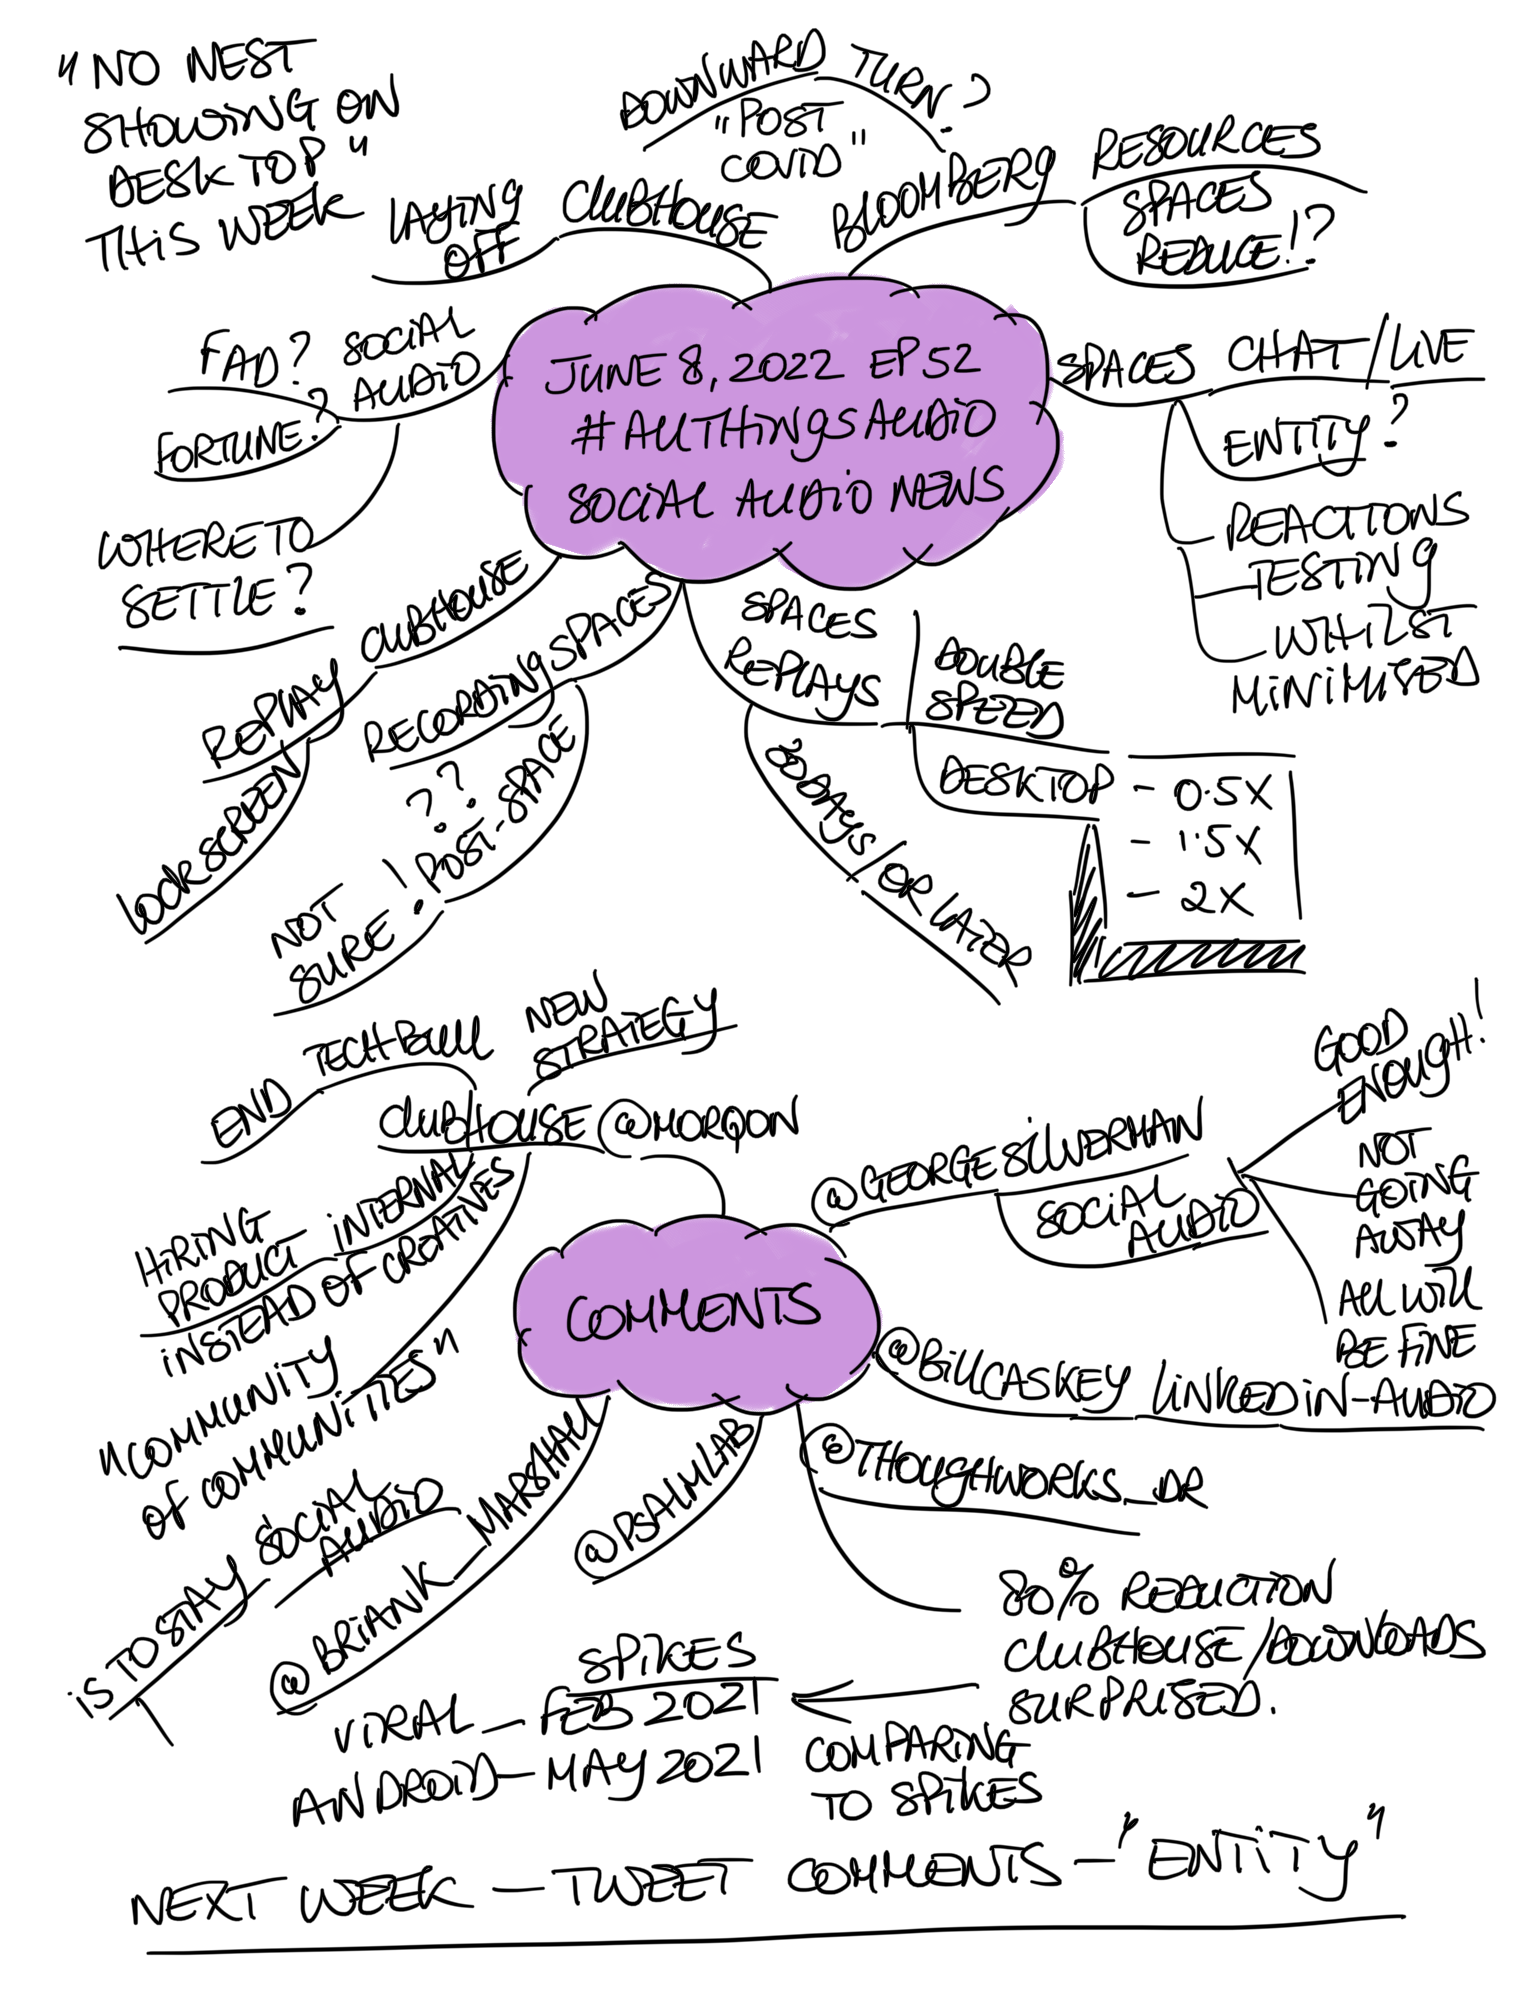 "NO NEST
SHOWING ON
DESKTOP"
THIS WEEK
DOWNWARD TURN?
"POST
COVID"
LAYING
OFF
CLUBHOUSE
BLOOMBERG
RESOURCES
SPACES
REDUCE!?
FAD?
SOCIAL
AUDIO
FORTUNE?
WHERE TO
SETTLE?
JUNE 8, 2022 EP 52
#ALLTHINGSAUDIO
SOCIAL AUDIO NEWS
SPACES CHAT/LIVE
ENTITY?
REACTIONS
TESTING
WHILST
MINIMISED
CLUBHOUSE
REPLAY
LOCK SCREEN
RECORDING SPACES
??
POST-SPACE
NOT
SURE!
SPACES
REPLAYS
DOUBLE
SPEED
DESKTOP
- 0.5X
- 1.5X
- 2X
30DAYS/OR LATER
END
TECH BULL
NEW
STRATEGY
CLUBHOUSE @MORQON
HIRING
PRODUCT INTERNAL
INSTEAD OF CREATIVES
"COMMUNITY
OF COMMUNITIES"
COMMENTS
@GEORGESILVERMAN
SOCIAL
AUDIO
GOOD
ENOUGH!
NOT
GOING
AWAY
ALL WILL
BE FINE
@BILLCASKEY LINKEDIN-AUDIO
@THOUGHWORKS_DR
@PSALMLAB
@BRIANK MARSHALL
SOCIAL
AUDIO
IS TO STAY
80% REDUCTION
CLUBHOUSE/DOWNLOADS
SURPRISED.
SPIKES
VIRAL - FEB 2021
ANDROID - MAY 2021
COMPARING
TO SPIKES
NEXT WEEK - TWEET COMMENTS - "ENTITY"